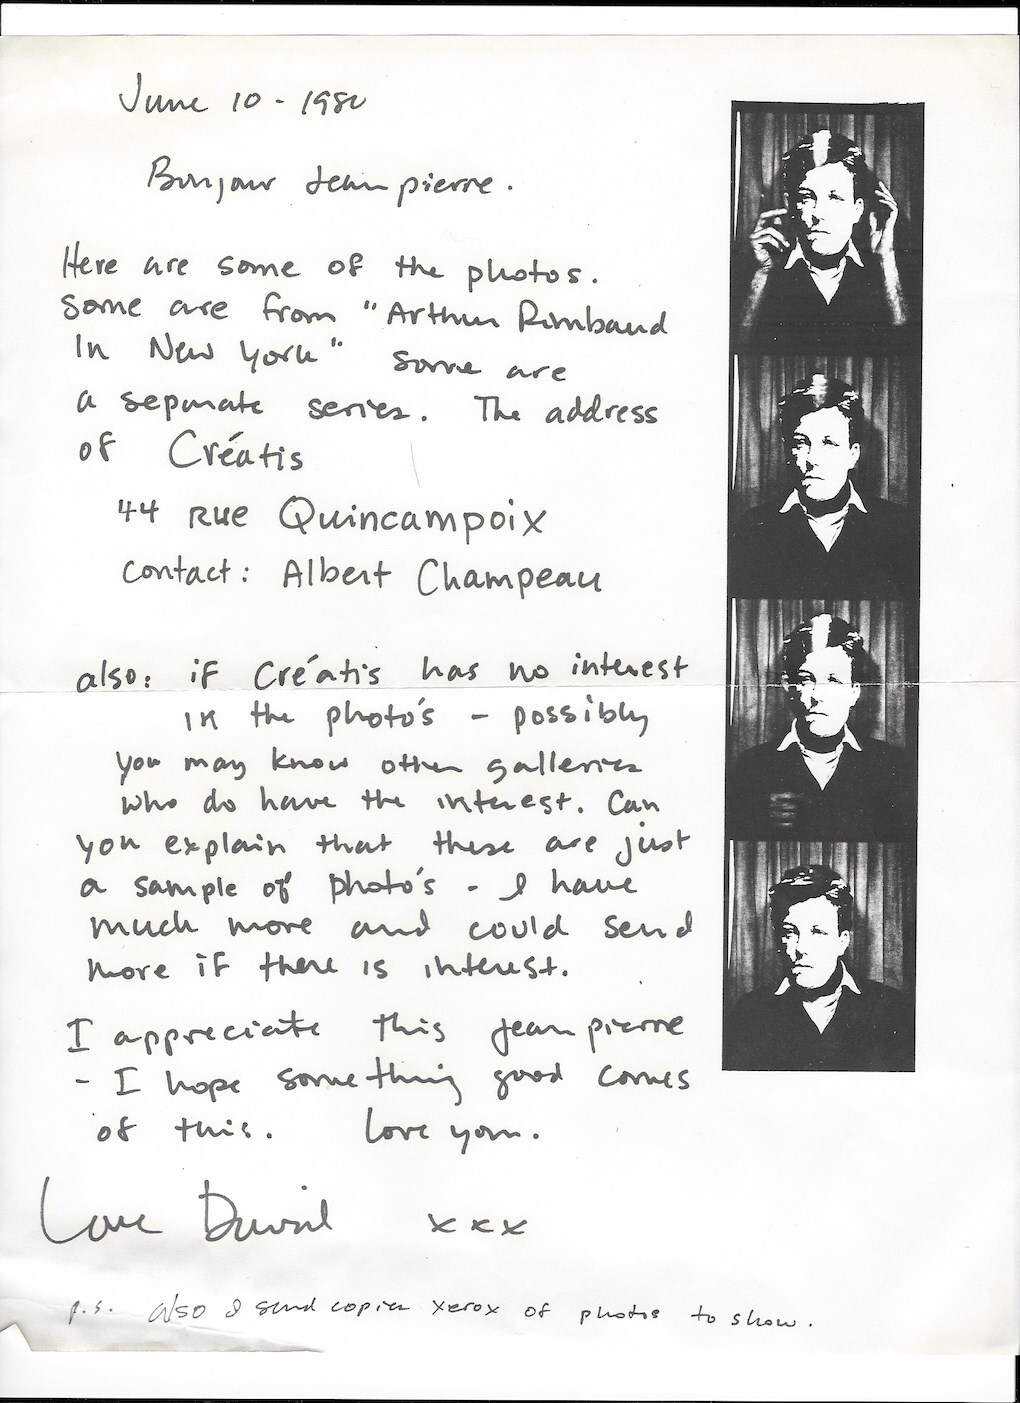 June 10 - 1980
Bonjour Jean pierre.
Here are some of the photos.
Some are from "Arthur Rimbaud
In New York" some are
a separate series. The address
of Créatis
44 Rue Quincampoix
contact: Albert Champeau
also: if Créatis has no interest
in the photo's - possibly
you may know other galleries
who do have the interest. Can
you explain that these are just
a sample of photo's - I have
much more and could send
more if there is interest.
I appreciate this Jean pierre
- I hope something good comes
of this. Love you.
Love David xxx
p.s. also I send copies xerox of photos to show.